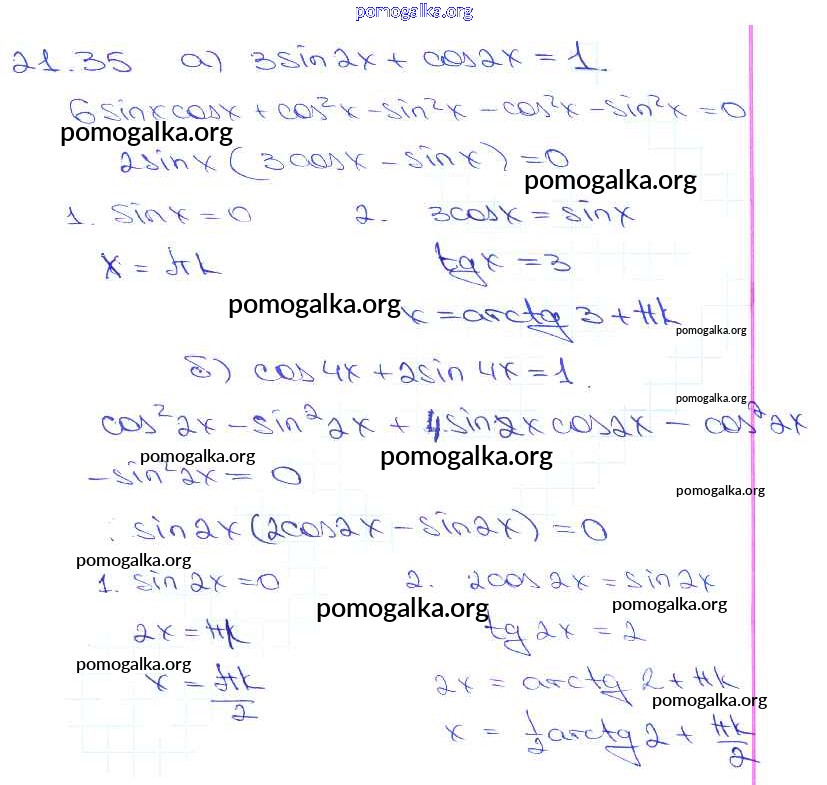 pomogalka.org
21.35 а) 3sin2x + cos2x = 1.
6sinxcosx + cos²x - sin²x - cos²x - sin²x = 0
pomogalka.org
2sinx(3cosx - sinx) = 0
pomogalka.org
1. sinx = 0 2. 3cosx = sinx
x = πk tgx = 3
pomogalka.org
x = arctg 3 + πk
pomogalka.org
б) cos4x + 2sin4x = 1.
pomogalka.org
cos²2x - sin²2x + 4sin2xcos2x - cos²2x
pomogalka.org pomogalka.org
-sin²2x = 0
pomogalka.org
sin2x(2cos2x - sin2x) = 0
pomogalka.org
1. sin2x = 0 2. 2cos2x = sin2x
pomogalka.org pomogalka.org
2x = πk tg2x = 2
pomogalka.org
x = πk/2 2x = arctg 2 + πk
pomogalka.org
x = 1/2 arctg 2 + πk/2